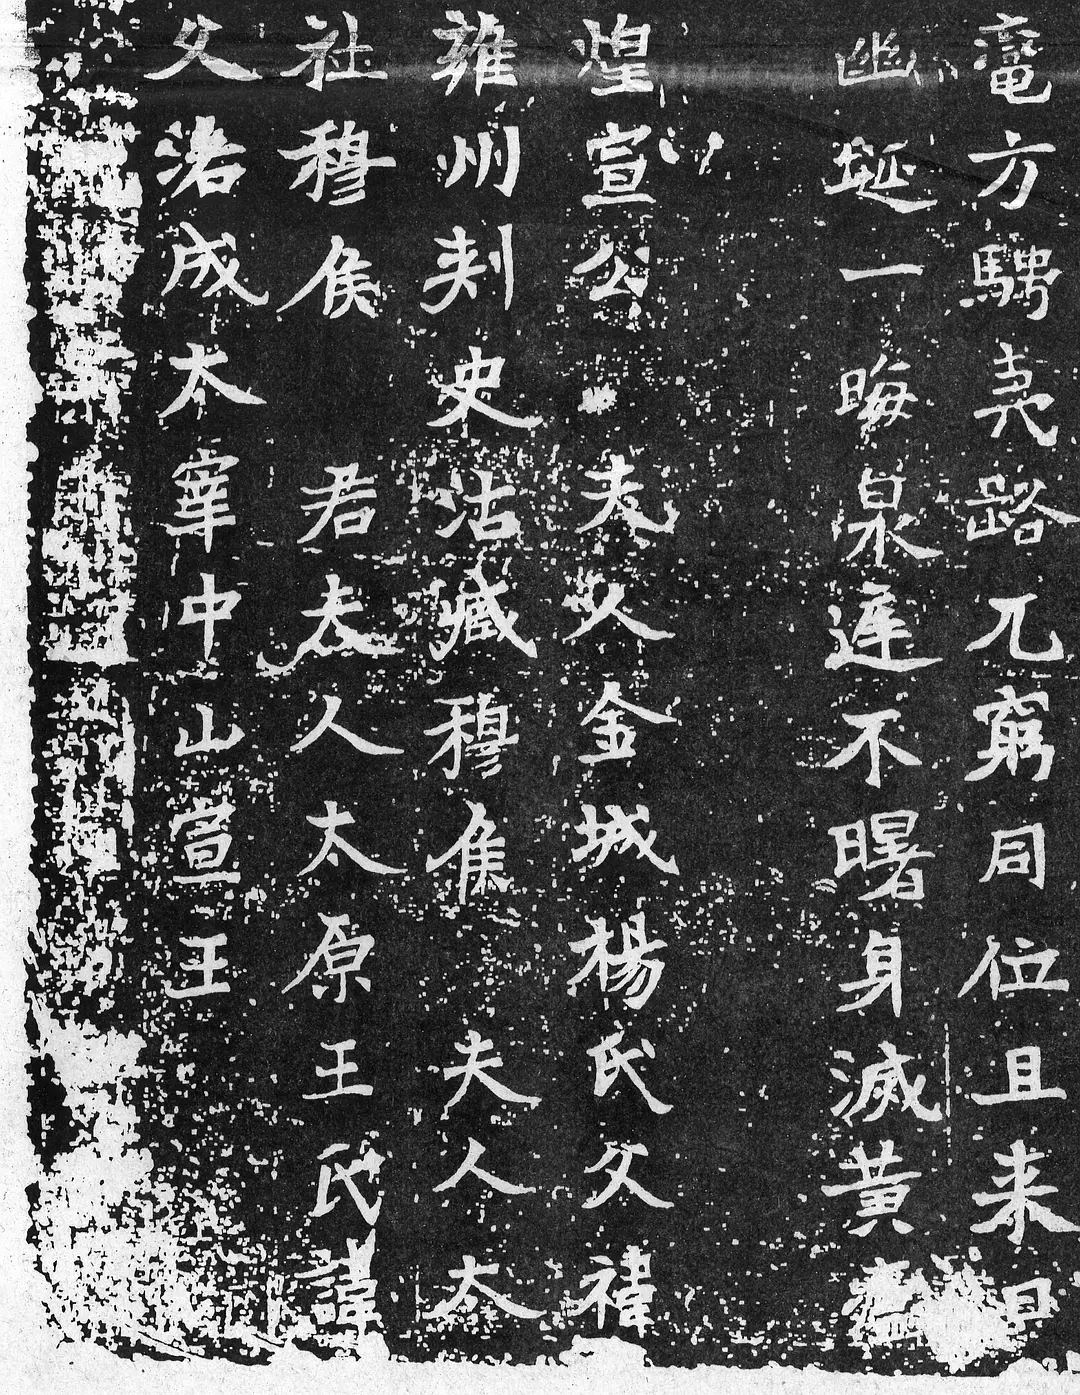 窀方騁堯路兀窮同位且来日
幽埏一晦泉遲不曙身滅黃
煌宣公夫人金城楊氏父禕
雍州刾史沽臧穆侯夫人太
社穆侯君太夫人太原王氏諱
父洛成太宰中山宣王